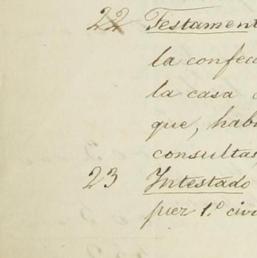 22 Testament
la confec
la casa
que, hab
consultas
23 Intestado
juez 1.º civi